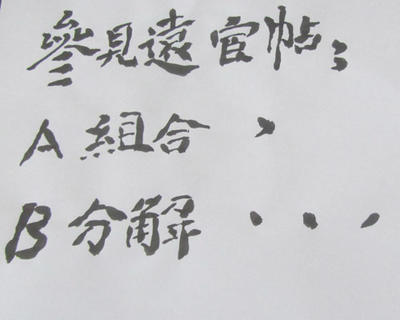 參見遠宦帖:
A 組合 、
B 分解 、、、